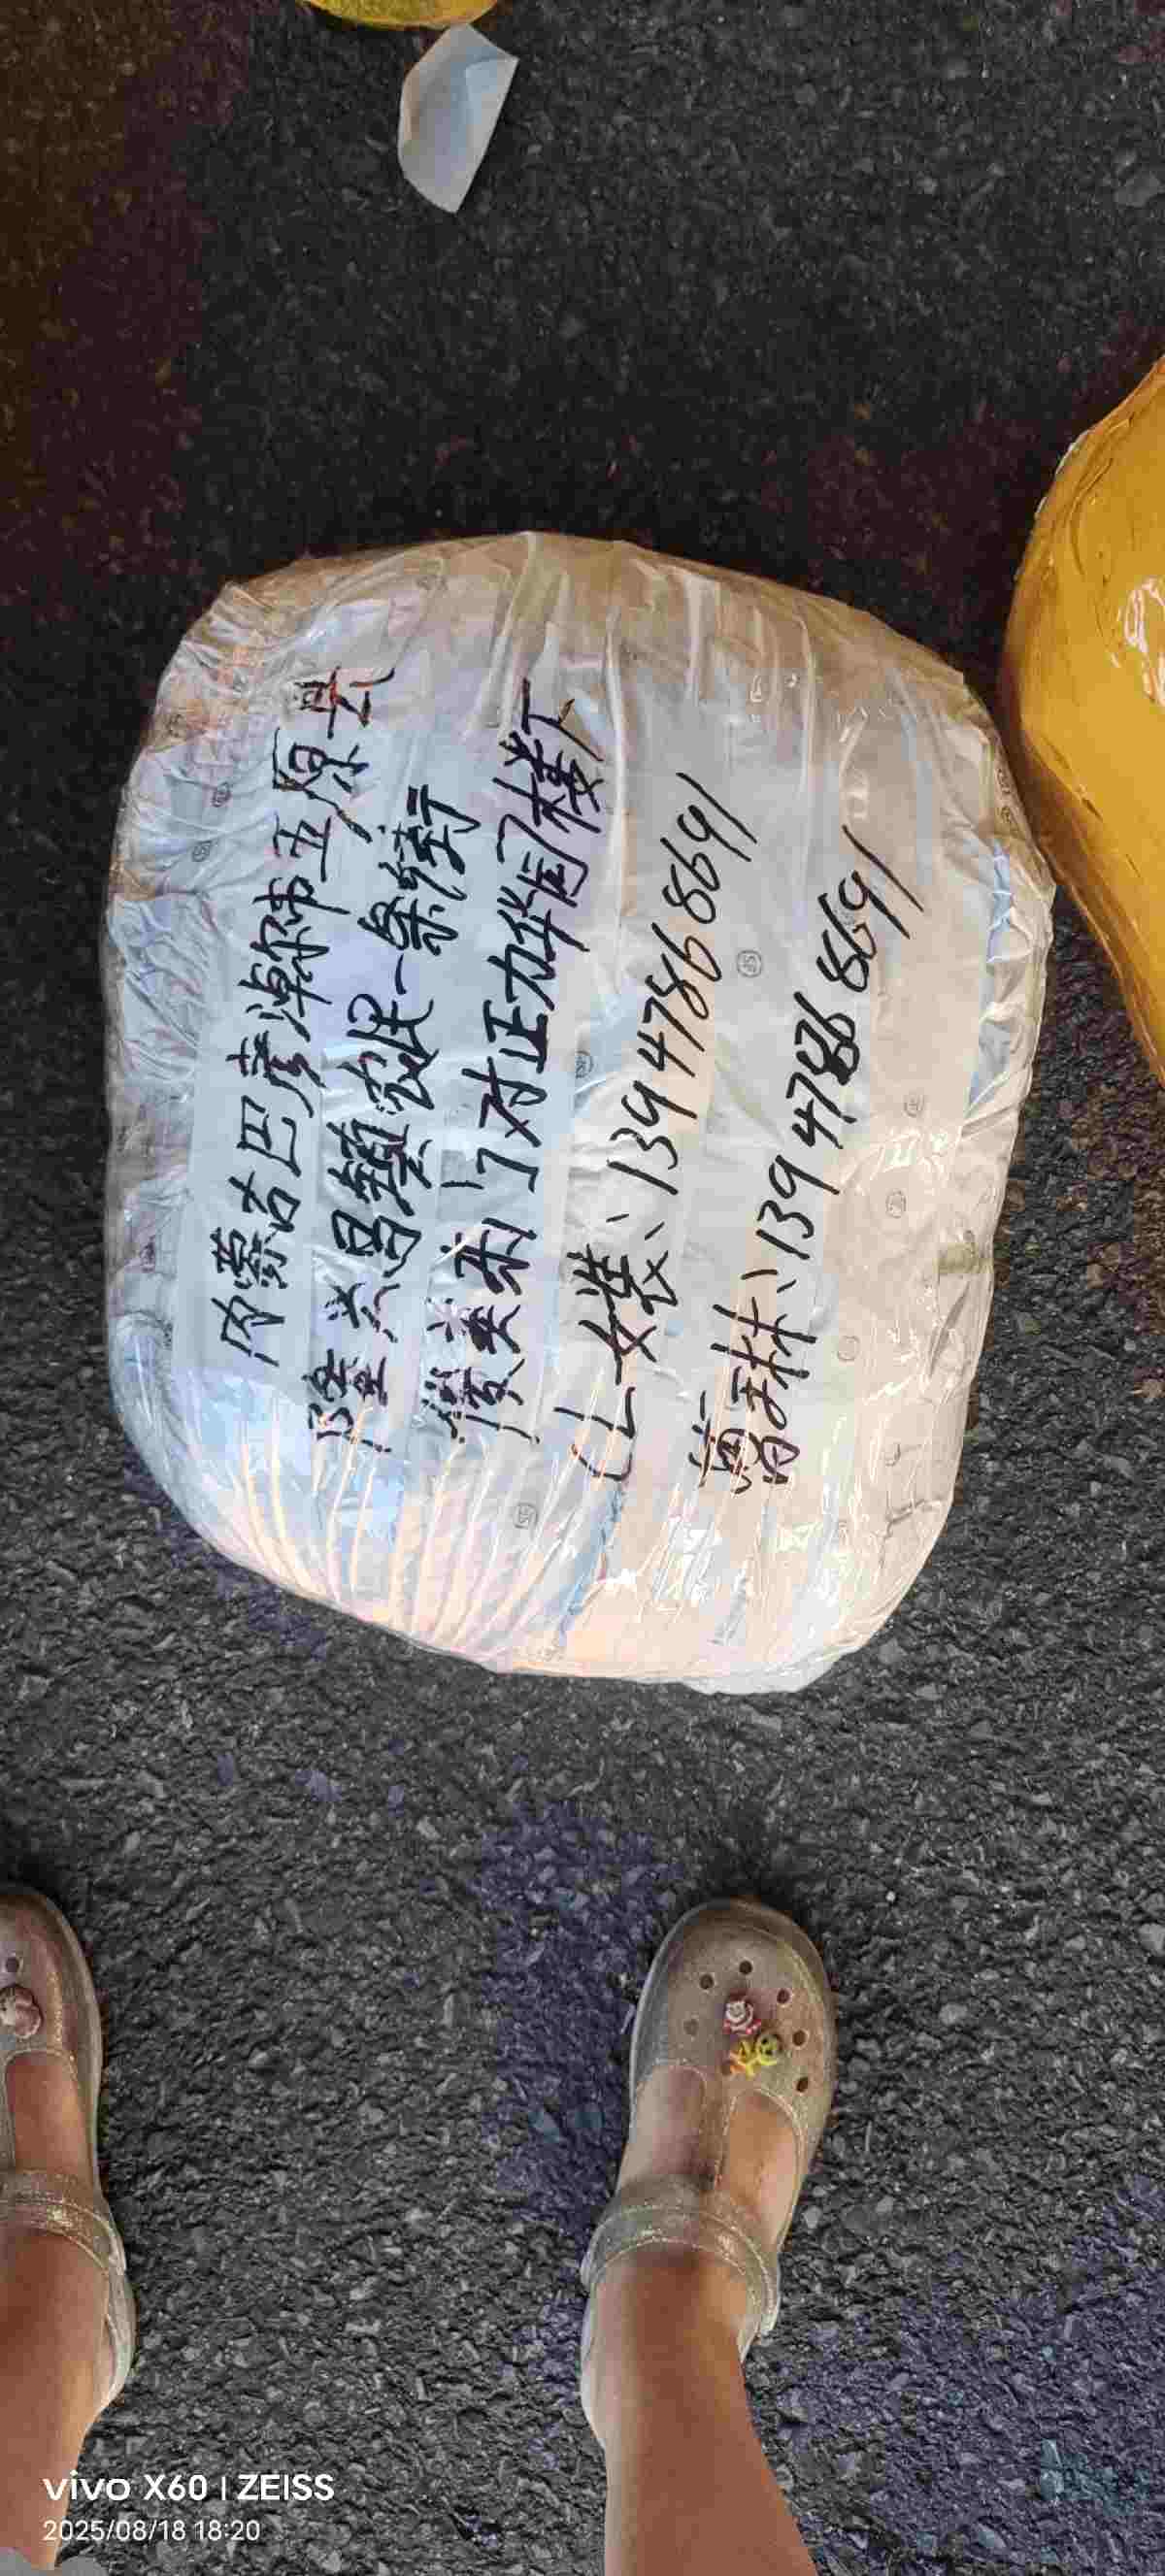 内蒙古巴彦淖尔市五原县
隆兴昌镇农民一条街
门对正力华闺楼下
女装: 13947868691
葛琳: 13947868691
vivo X60 | ZEISS
2025/08/18 18:20